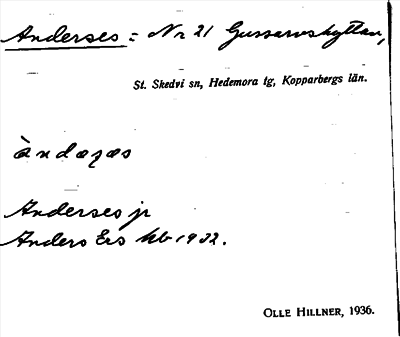 Anderses = Nr 21 Gussarvshyttan,
St. Skedvi sn, Hedemora tg, Kopparbergs län.
àndæʒæs
Anderses jr
Anders Ers hb 1932.
OLLE HILLNER, 1936.